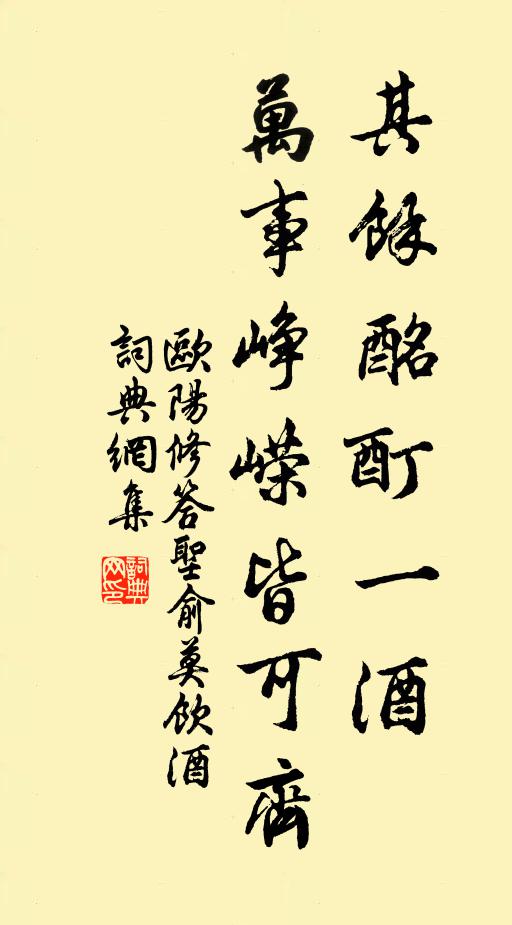 其餘酩酊一酒
萬事崢嶸皆可齊
歐陽修答聖俞莫飲酒
詞典網集
詞典網印